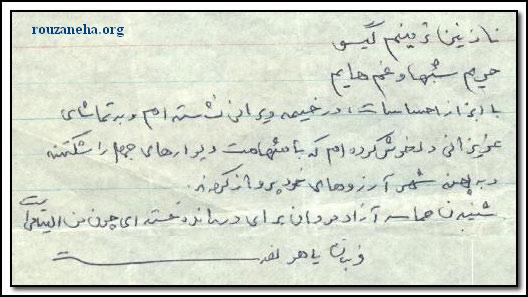 rouzaneha.org
نازنین ترینم گیسو
حریم شبها و غم هایم
با ابراز احساسات، در خیمه ویرانی نشسته ام و به تماشای
عزیزانی دلخوش کرده ام که با شهامت دیوارهای جهل را شکستند
و به پهنه شهر آرزوهای خود پرواز کردند.
شنیدن حماسه آزادمردان برای درمانده و خسته ای چون من التیام است
قربانت یاهر